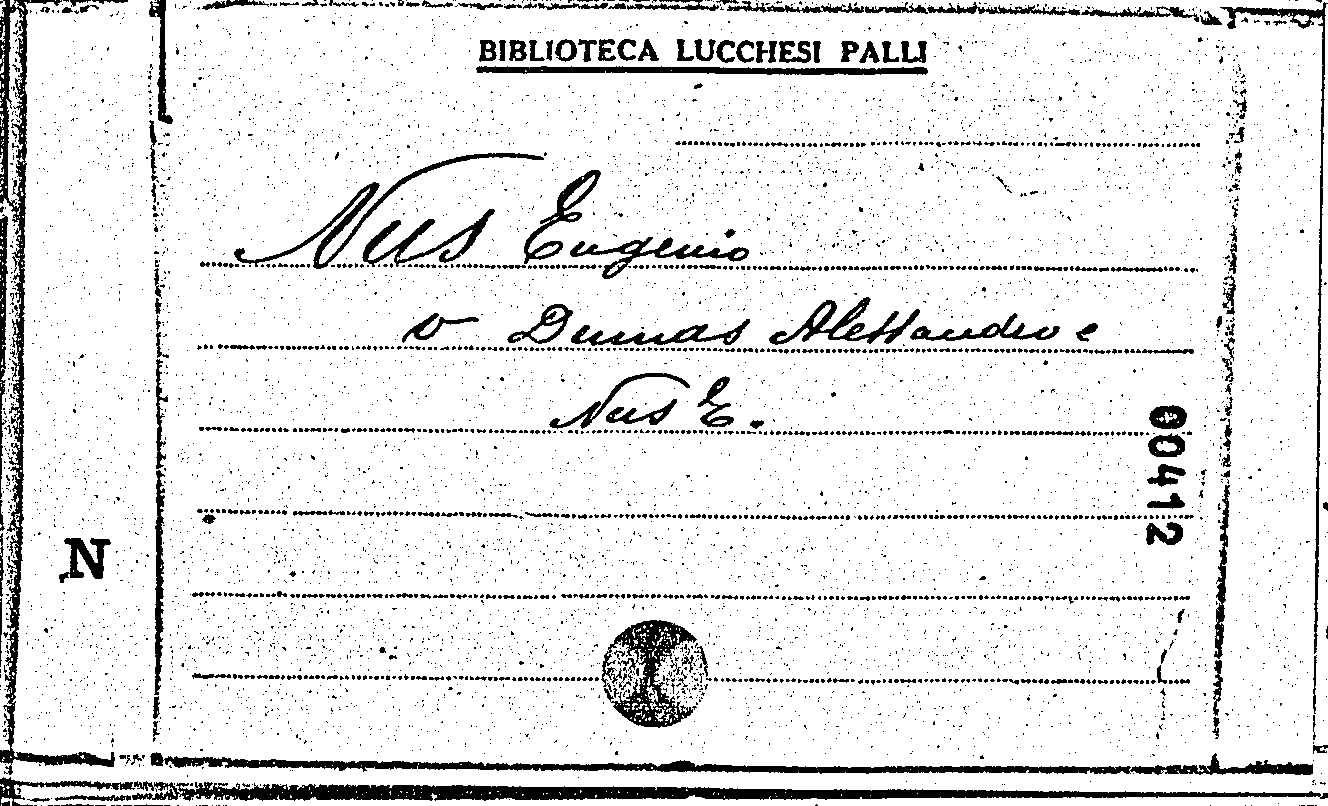 BIBLIOTECA LUCCHESI PALLI
Nus Eugenio
v Dumas Alessandro e
Nus E.
00412
N